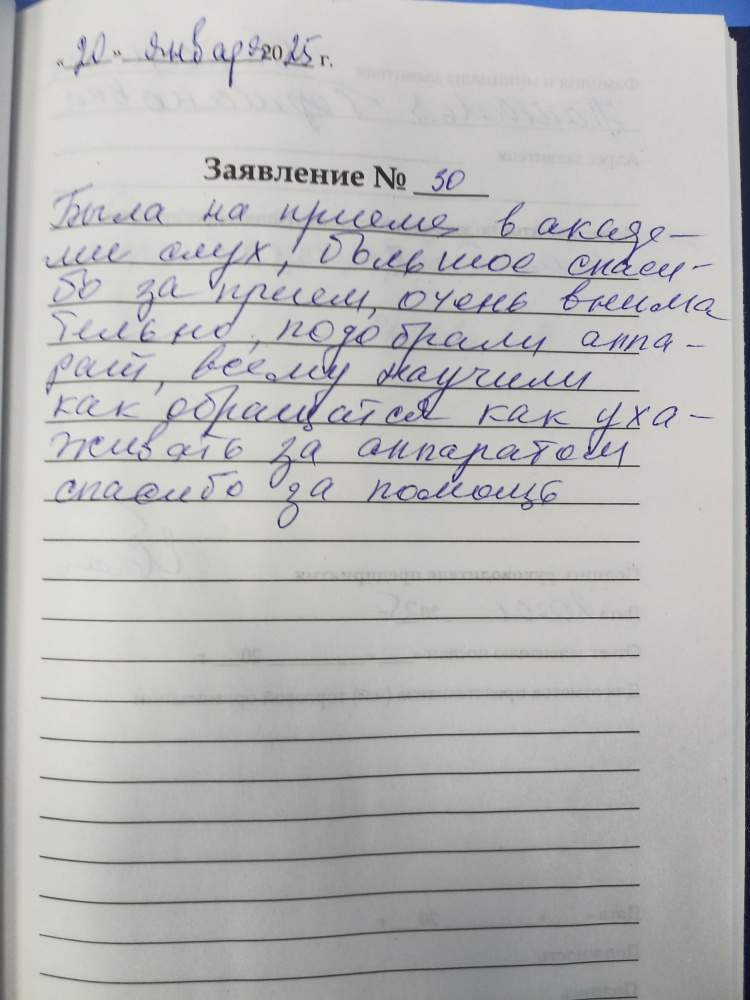 «20» января 2025 г.
Заявление № 30
Была на приеме, в акаде-
мие слух, большое спаси-
бо за прием, очень внима
тельно, подобрали аппа-
рат, всему научили
как обращатся как уха-
живать за аппаратом
спасибо за помощь